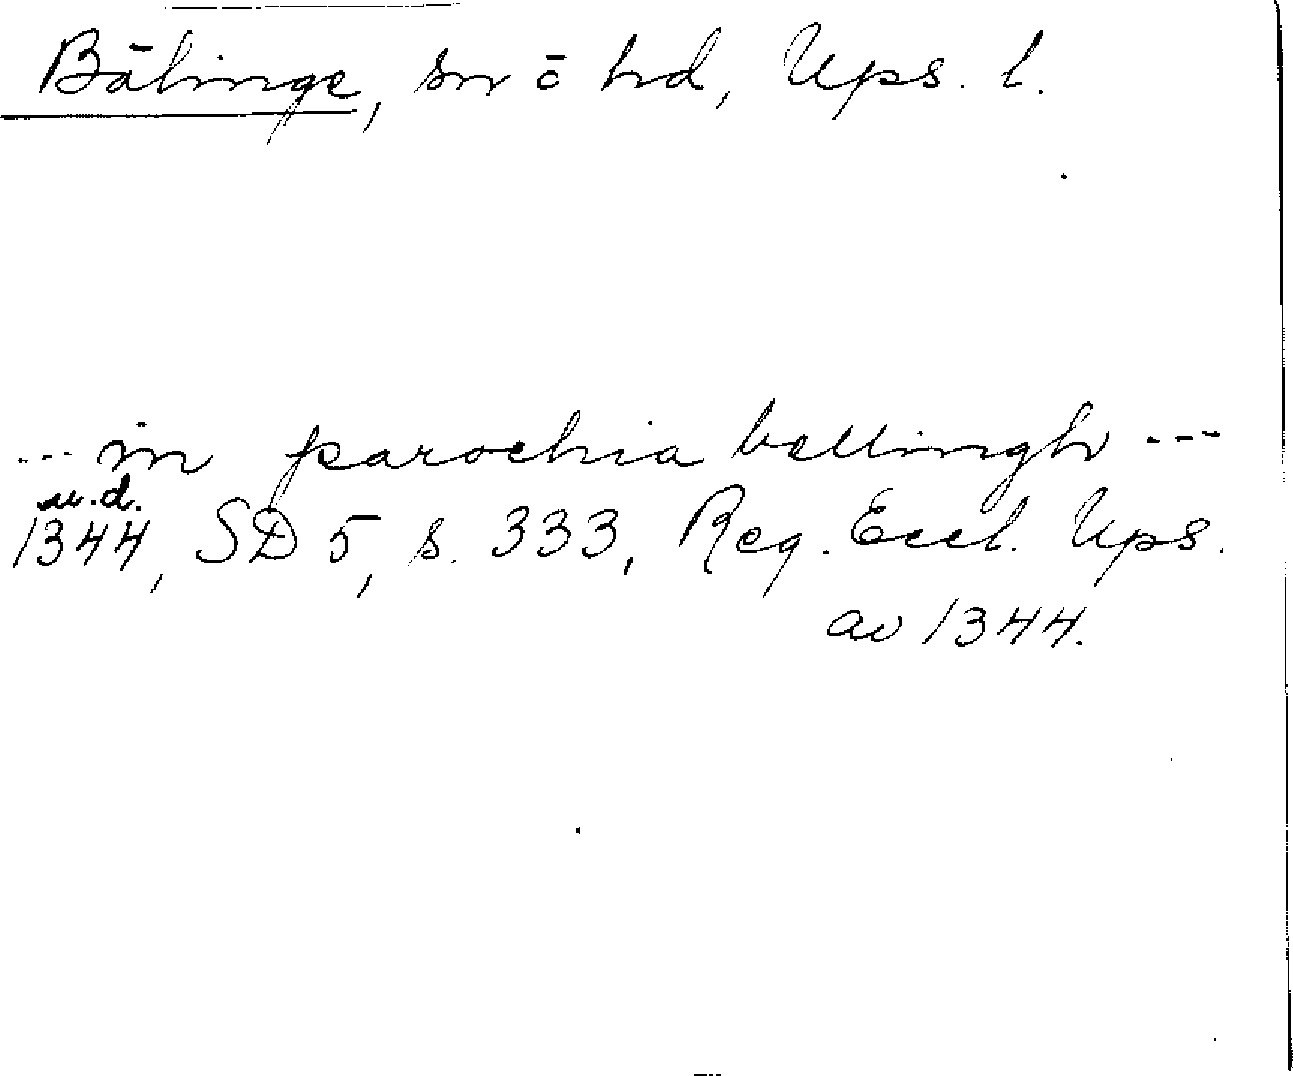 Bälinge, sn o hd, Ups. l.
... in parochia bellingh ---
u.d.
1344, SD 5, s. 333, Reg. Eccl. Ups.
av 1344.